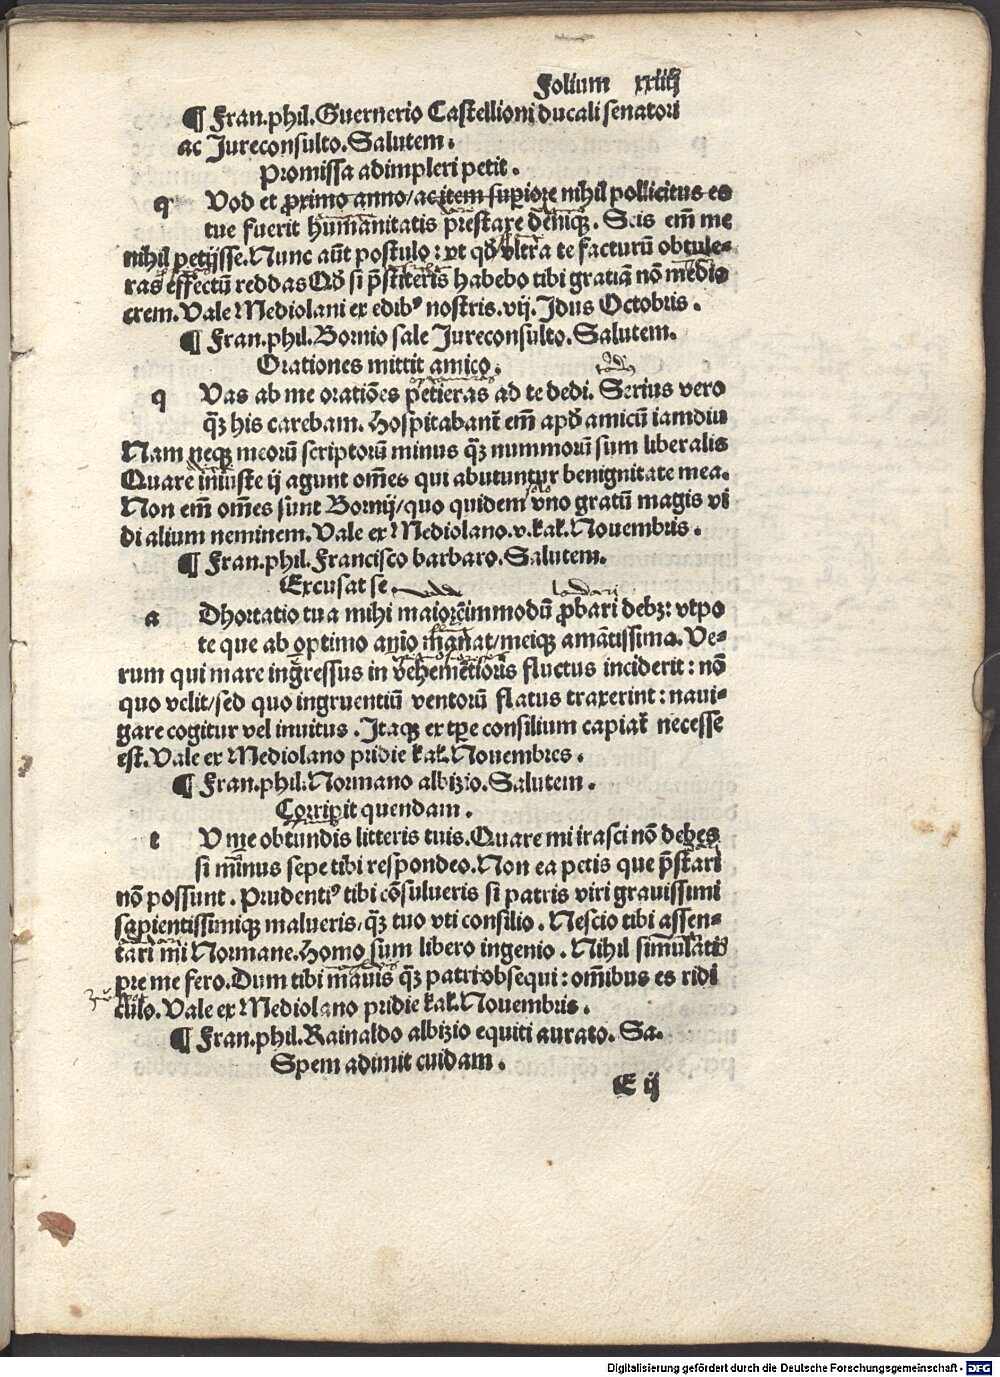 Folium xxiiij
¶ Fran.phil.Guernerio Castellioni ducali senatori
ac Jureconsulto.Salutem.
Promissa adimpleri petit.
q Uod et ꝓximo anno/ac item supiore nihil pollicitus es
tue fuerit humanitatis prestare deniqꝫ. Scis em̄ me
nihil petijsse.Nunc aūt postulo: vt qd̄ vltra te facturū obtule-
ras effectū reddas Qd̄ si p̄stiteris habebo tibi gratiā nō medio
crem.Vale Mediolani ex edibꝰ nostris.vij.Jdus Octobris.
¶ Fran.phil.Bornio sale Jureconsulto.Salutem.
Orationes mittit amico.
q Uas ab me oratiōes petieras ad te dedi. Serius vero
qꝫ his carebam.Hospitabant̄ em̄ apd̄ amicū iamdiu
Nam neqꝫ meorū scriptorū minus qꝫ nummorū sum liberalis
Quare iniuste ij agunt om̄es qui abutuntur benignitate mea.
Non em̄ om̄es sunt Bornij/quo quidem vno gratū magis vi
di alium neminem.Vale ex Mediolano.v.kal.Nouembris.
¶ Fran.phil.Francisco barbaro.Salutem.
Excusat se
a Dhortatio tua mihi maiorē immodū ꝓbari debꝫ: vtpo
te que ab optimo aīo manat/meiqꝫ amātissimo. Ve-
rum qui mare ingressus in vehemētioris fluctus inciderit: nō
quo velit/sed quo ingruentiū ventorū flatus traxerint: naui-
gare cogitur vel inuitus. Itaqꝫ ex tpe consilium capiat̄ necesse
est.Vale ex Mediolano pridie kal.Nouembres.
¶ Fran.phil.Normano albizio.Salutem.
Corripit quendam.
t U me obtundis litteris tuis.Quare mi irasci nō debes
si minus sepe tibi respondeo.Non ea petis que p̄stari
nō possunt. Prudentiꝰ tibi cōsulueris si patris viri grauissimi
sapientissimiqꝫ malueris, qꝫ tuo vti consilio. Nescio tibi assen-
tari mi Normane.Homo sum libero ingenio. Nihil simulatis
pre me fero.Dum tibi mauis qꝫ patri obsequi: om̄ibus es ridi
culo. Vale ex Mediolano pridie kal.Nouembris.
¶ Fran.phil.Rainaldo albizio equiti aurato. Sa.
Spem adimit cuidam.
E ij
Digitalisierung gefördert durch die Deutsche Forschungsgemeinschaft - DFG